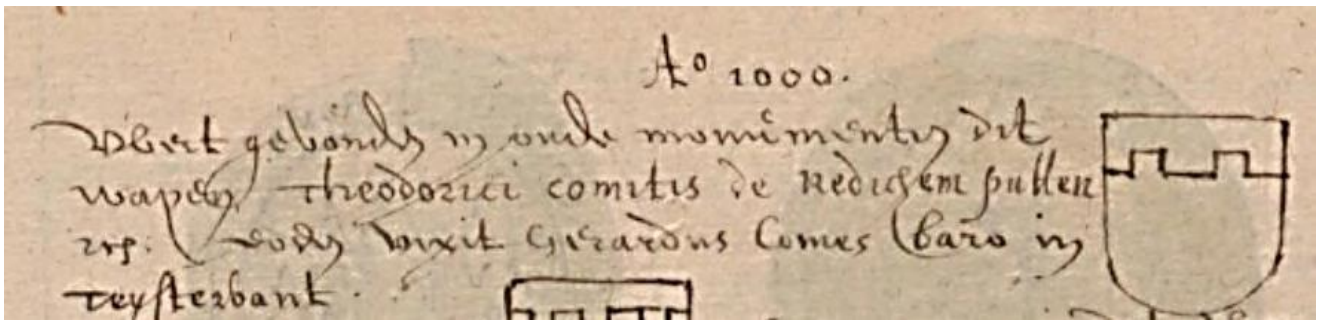 Aº 1000.
Wert gevonden in oude monumenten dit
wapen, Theodorici comitis de Redichem pullen
rep. eoden vixit Gerardus Comes baro in
Teysterbant.